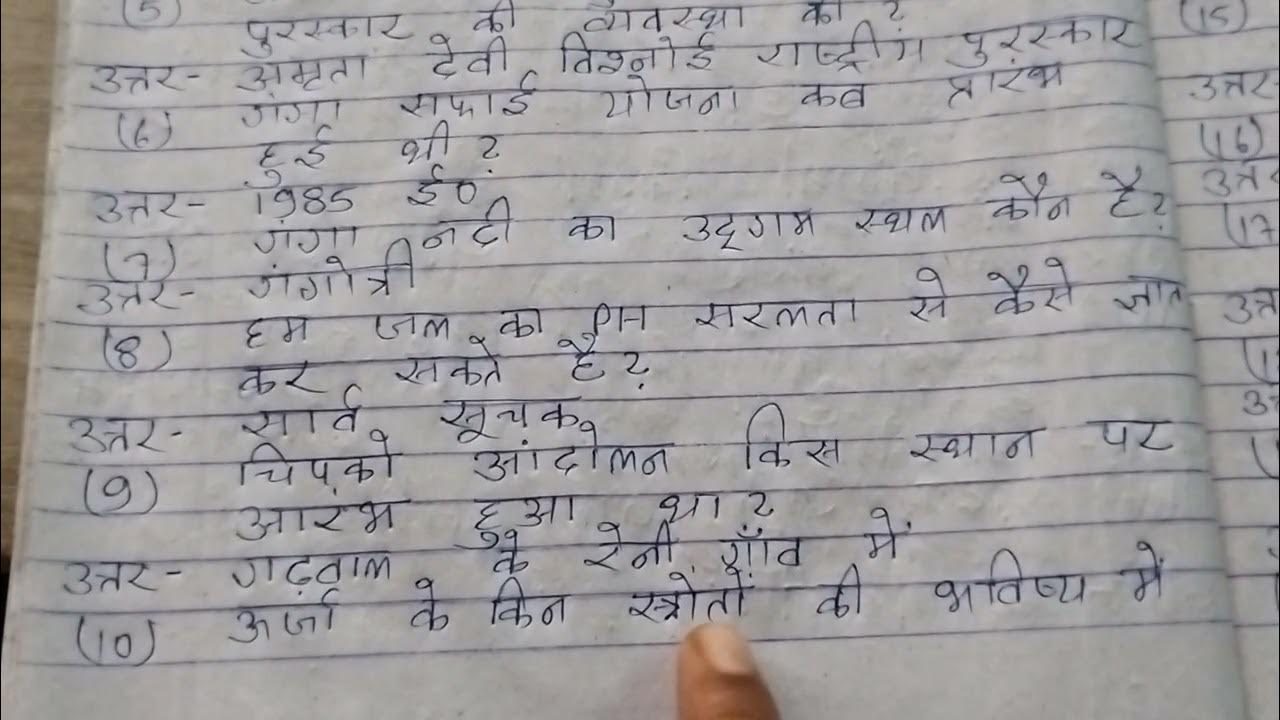 (5) पुरस्कार की व्यवस्था की ?
उत्तर- अमृता देवी विश्नोई राष्ट्रीय पुरस्कार
(6) गंगा सफाई योजना कब प्रारंभ
हुई थी ?
उत्तर- 1985 ई०
(7) गंगा नदी का उद्गम स्थल कौन है ?
उत्तर- गंगोत्री
(8) हम जल का PH सरलता से कैसे ज्ञात
कर सकते है ?
उत्तर- सार्व सूचक
(9) चिपको आंदोलन किस स्थान पर
आरंभ हुआ था ?
उत्तर- गढ़वाल के रेनी गाँव में
(10) ऊर्जा के किन स्त्रोतों की भविष्य में
(15)
उत्तर-
(16)
उत्त
(17
उत्त